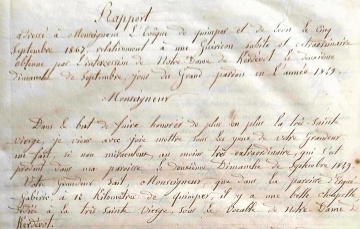 Rapport
adressé à Monseigneur L'évêque de quimper et de Leon le cinq
Septembre 1867, relativement à une Guérison subite et Extraordinaire
obtenue par l'intercession de Notre Dame de Kerdévot, le deuxième
dimanche de Septembre, jour du Grand pardon en l'année 1849
Monseigneur
Dans le but de faire honorer de plus en plus la très Sainte
Vierge, je viens avec joie mettre sous les yeux de votre Grandeur
un fait, si non miraculeux au moins très extraordinaire, qui s'est
produit dans ma paroisse le deuxième Dimanche de Septembre 1849
Votre Grandeur sait, Monseigneur que dans la paroisse d'Ergué
Gabéric, à 12 Kilomètres de Quimper, il y a une belle chapelle
dédiée à la très Sainte Vierge sous le Vocable de Notre Dame
Kerdévot.